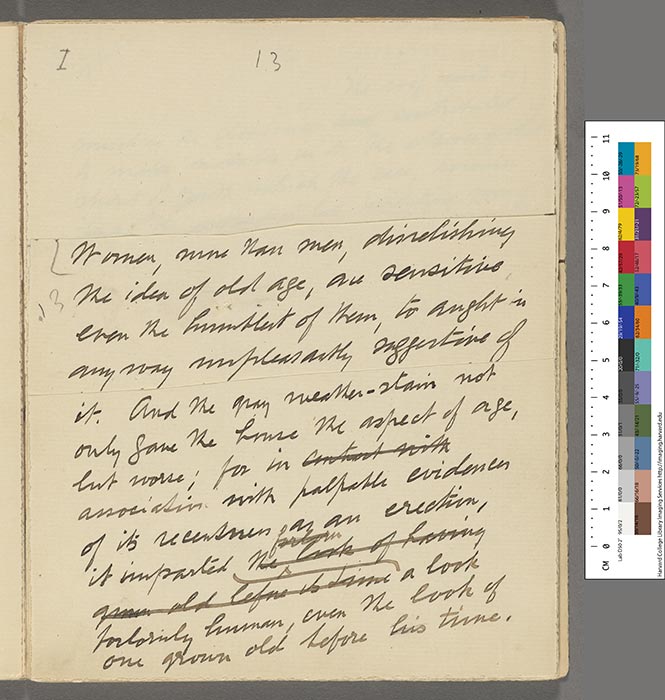 I 13
Women, more than men, disrelishing
13
the idea of old age, are sensitive,
even the humblest of them, to aught in
any way unpleasantly suggestive of
it. And the gray weather-stain not
only gave the house the aspect of age,
but worse, for in contrast with
association with palpable evidences
of its recentness as an erection,
forlorn
it imparted the look of having
grown old before its time a look
forlornly human, even the look of
one grown old before his time.
CM 0 1 2 3 4 5 6 7 8 9 10 11
Harvard College Library Imaging Services http://imaging.harvard.edu